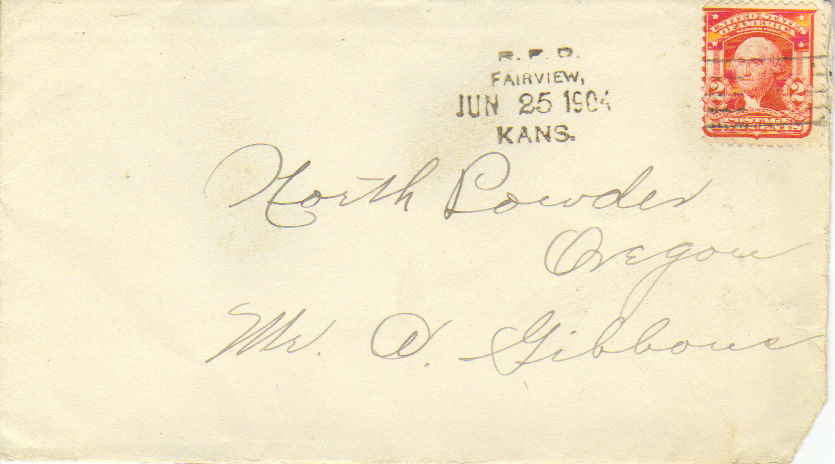 R. F. D.
FAIRVIEW,
JUN 25 1904
KANS.
UNITED STATES
OF AMERICA
2 2
North Powder
Oregon
Mr. A. Gibbons